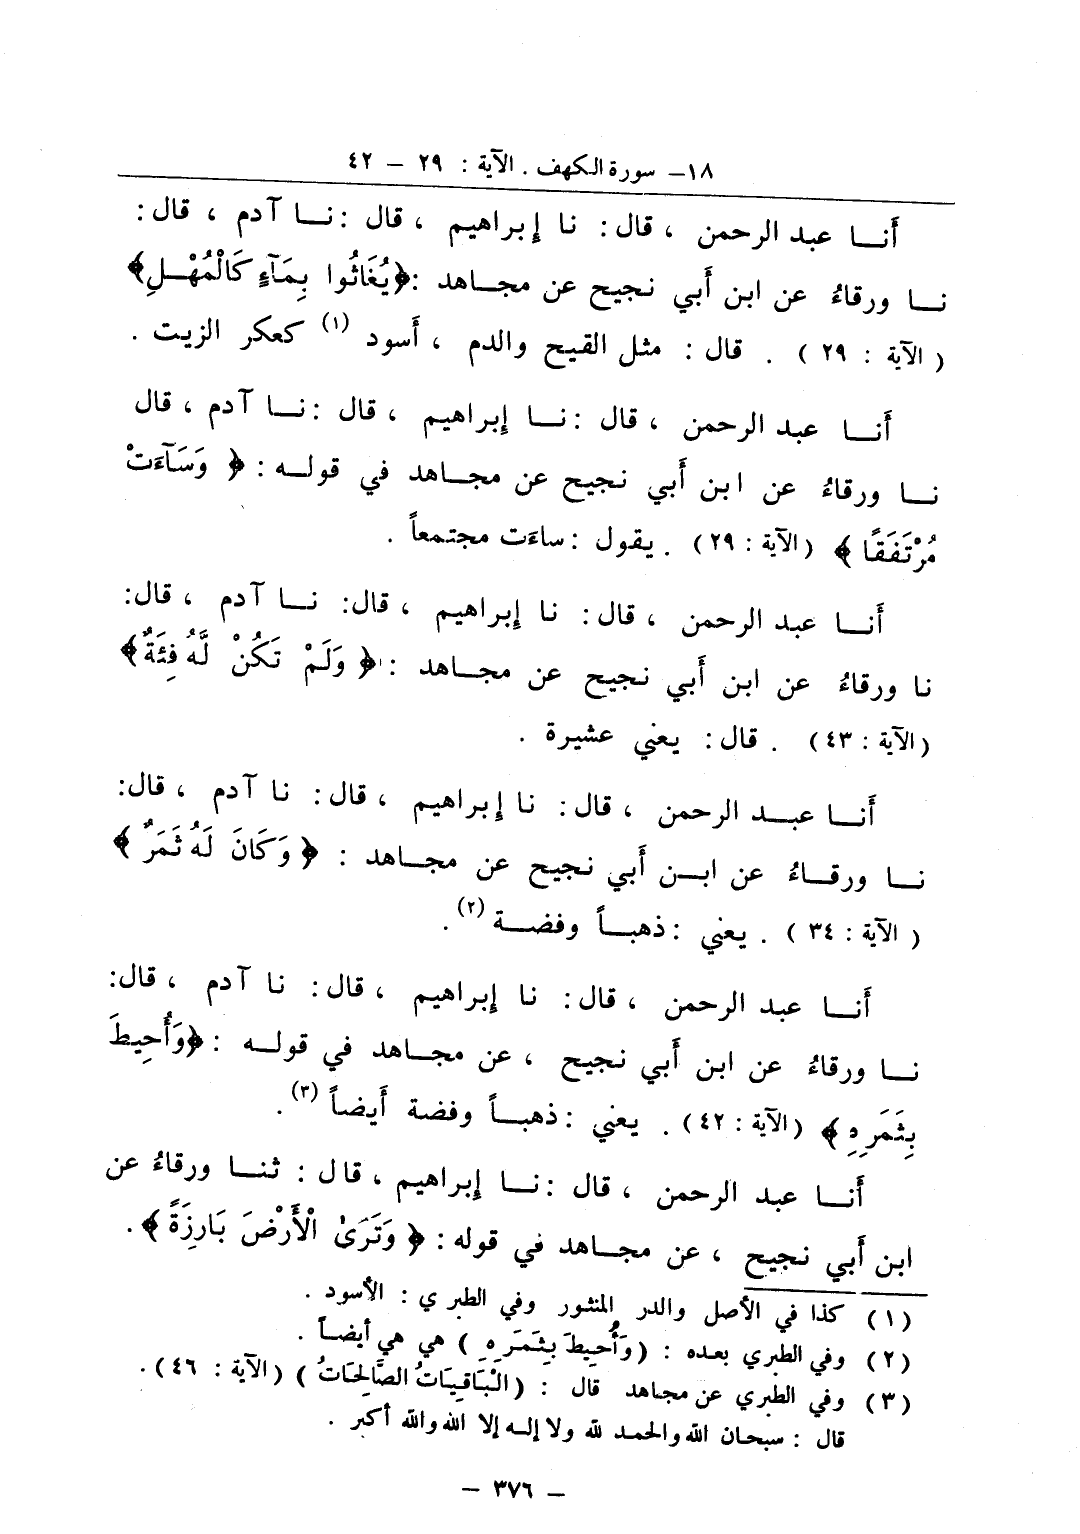 ١٨ــ سورة الكهف . الآية : ٢٩ – ٤٢
أنــا عبد الرحمن ، قال : نا إبراهيم ، قال : نــا آدم ، قال :
نــا ورقاءُ عن ابن أبي نجيح عن مجــاهد : ﴿يُغَاثُوا بِمَآءٍ كَالْمُهْــلِ﴾
( الآية : ٢٩ ) . قال : مثل القيح والدم ، أسود (١) كعكر الزيت .
أنــا عبد الرحمن ، قال : نــا إبراهيم ، قال : نــا آدم ، قال
نــا ورقاءُ عن ابن أبي نجيح عن مجــاهد في قولــه : ﴿ وَسَآءَتْ
مُرْتَفَقًا ﴾ (الآية : ٢٩) . يقول : ساءَت مجتمعاً .
أنــا عبد الرحمن ، قال : نا إبراهيم ، قال: نــا آدم ، قال:
نا ورقاءُ عن ابن أبي نجيح عن مجــاهد : ﴿ وَلَمْ تَكُنْ لَّهُ فِئَةٌ﴾
(الآية : ٤٣) . قال : يعني عشيرة .
أنــا عبــد الرحمن ، قال : نا إبراهيم ، قال : نا آدم ، قال:
نــا ورقــاءُ عن ابــن أبي نجيح عن مجــاهد : ﴿ وَكَانَ لَهُ ثَمَرٌ ﴾
( الآية : ٣٤ ) . يعني : ذهبــاً وفضــة (٢) .
أنــا عبد الرحمن ، قال : نا إبراهيم ، قال : نا آدم ، قال:
نــا ورقاءُ عن ابن أبي نجيح ، عن مجــاهد في قولــه : ﴿وَأُحِيطَ
بِثَمَرِهِ ﴾ (الآية : ٤٢) . يعني : ذهبــاً وفضة أيضاً (٣) .
أنــا عبد الرحمن ، قال : نــا إبراهيم ، قال : ثنــا ورقاءُ عن
ابن أبي نجيح ، عن مجــاهد في قوله : ﴿ وَتَرَىٰ الْأَرْضَ بَارِزَةً ﴾ .
(١) كذا في الأصل والدر المنثور وفي الطبري : الأسود .
(٢) وفي الطبري بعده : (وَأُحِيطَ بِثَمَرِهِ ) هي هي أيضــاً .
(٣) وفي الطبري عن مجاهد قال : (الْبَاقِيَاتُ الصَّالِحَاتُ ) (الآية : ٤٦) .
قال : سبحان الله والحمد لله ولا إلــه إلا الله والله أكبر .
– ٣٧٦ –